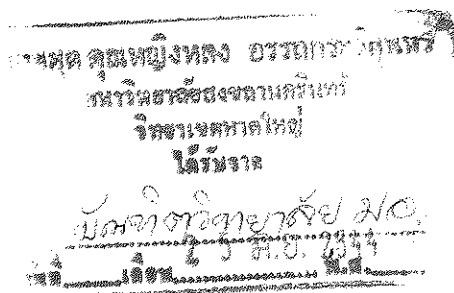 หอสมุด คุณหญิงหลง อรรถกระวีสุนทร
มหาวิทยาลัยสงขลานครินทร์
วิทยาเขตหาดใหญ่
ได้รับจาก
บัณฑิตวิทยาลัย มอ.
วันที่ เดือน พ.ศ.